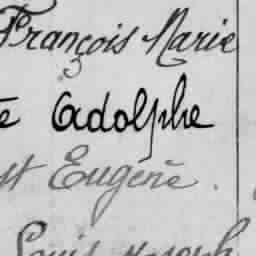 François Marie
e Adolphe
st Eugène.
Louis Joseph